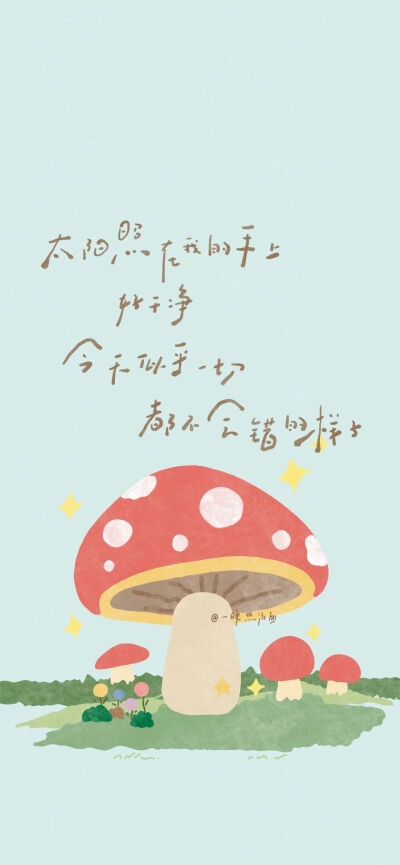 太阳照在我的手上
好干净
今天似乎一切
都不会错的样子